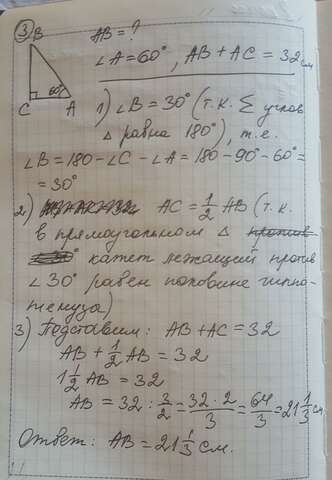 3) B
AB = ?
∠A = 60°, AB + AC = 32 см
60°
C A
1) ∠B = 30° (т.к. Σ углов
Δ равна 180°), т.е.
∠B = 180 - ∠C - ∠A = 180 - 90° - 60° =
= 30°
2) AC = 1/2 AB (т.к.
в прямоугольном Δ против
катет лежащий против
∠ 30° равен половине гипо-
тенуза)
3) Подставим: AB + AC = 32
AB + 1/2 AB = 32
1 1/2 AB = 32
AB = 32 : 3/2 = 32 · 2/3 = 64/3 = 21 1/3 см
Ответ: AB = 21 1/3 см.